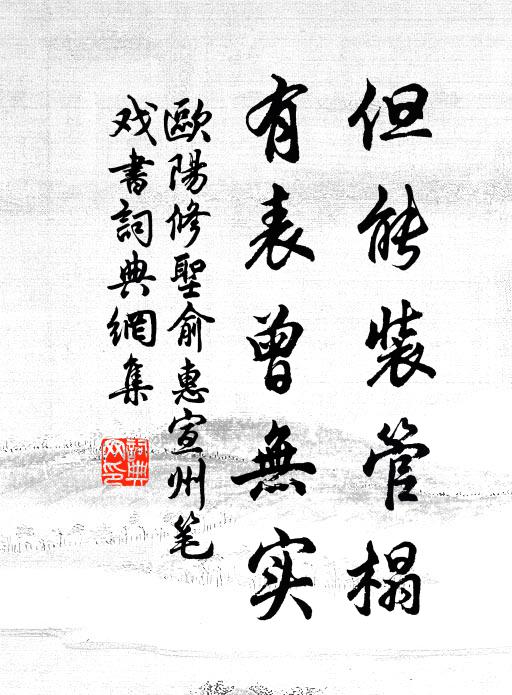 但能装管榻
有表曾無实
歐陽修聖俞惠宣州笔
戏書詞典網集